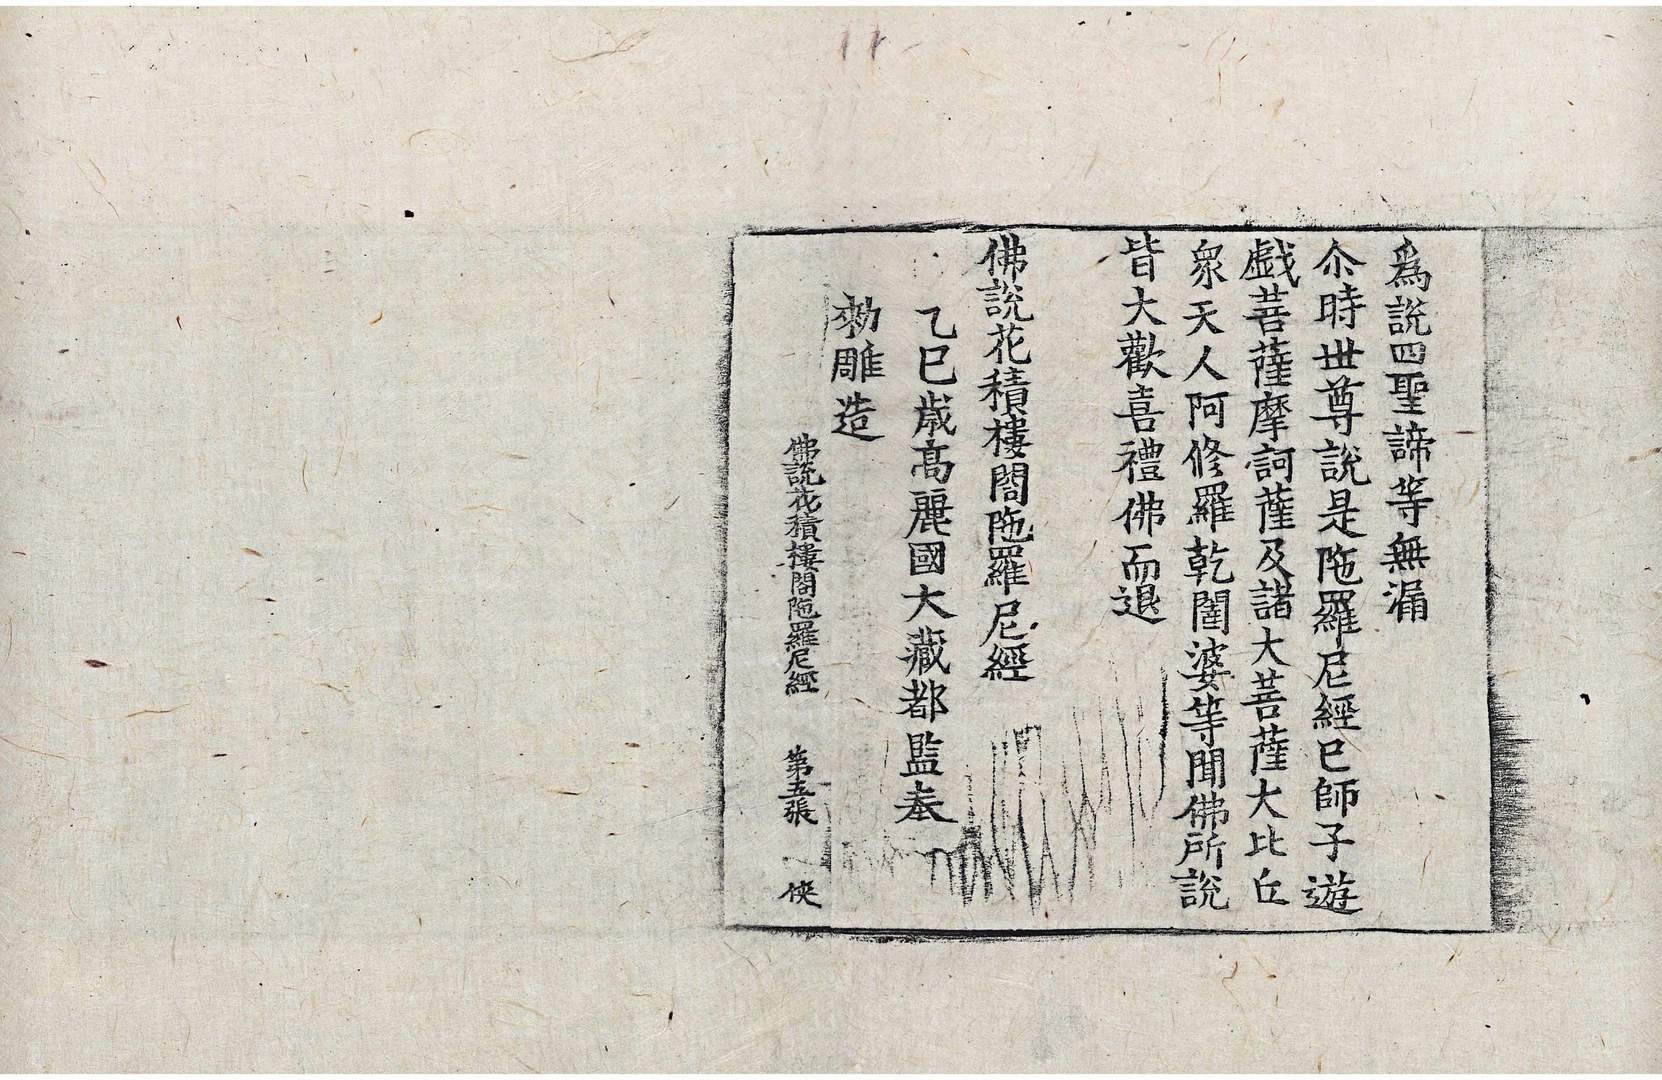 爲說四聖諦等無漏
尒時世尊說是陁羅尼經已師子遊
戲菩薩摩訶薩及諸大菩薩大比丘
衆天人阿修羅乾闥婆等聞佛所說
皆大歡喜禮佛而退
佛說花積樓閣陁羅尼經
乙巳歳高麗國大藏都監奉
勑雕造
佛說花積樓閣陁羅尼經 第五張 俠